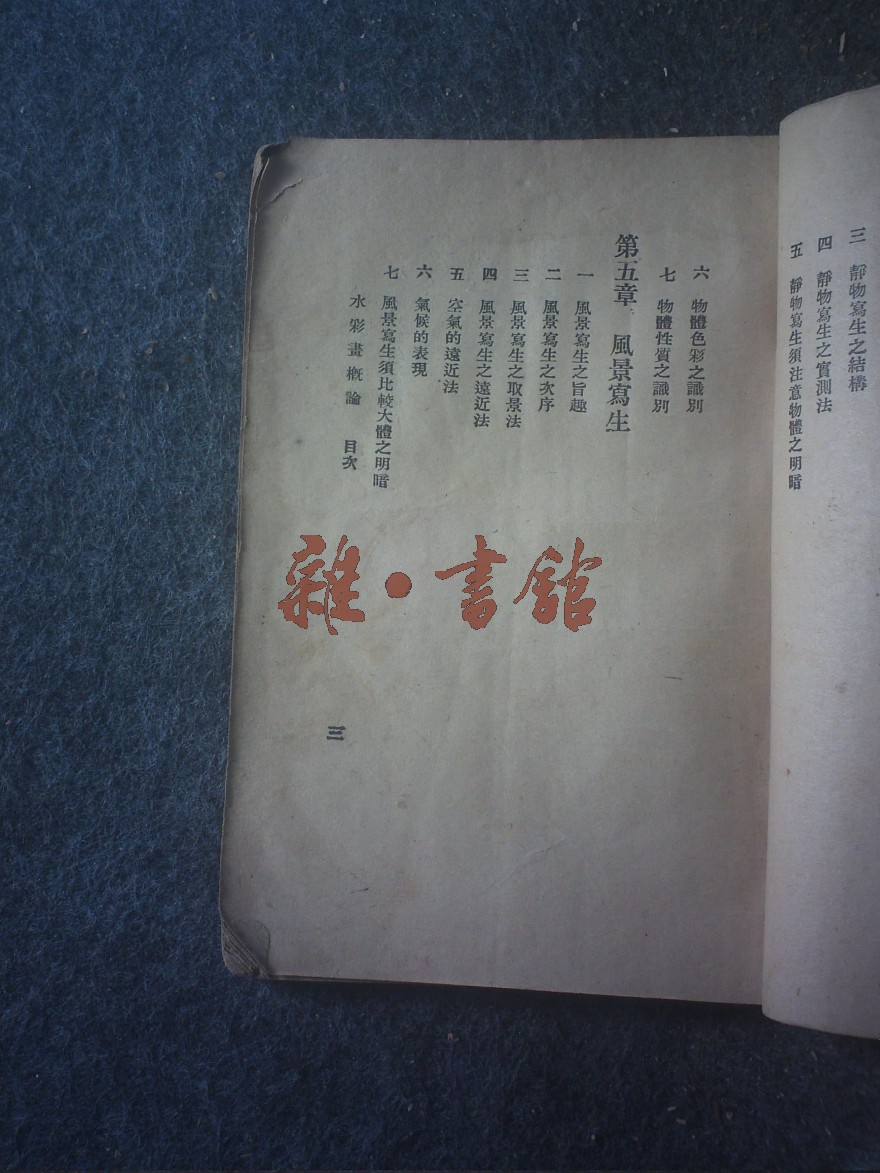 三　靜物寫生之結構
四　靜物寫生之實測法
五　靜物寫生須注意物體之明暗
六　物體色彩之識別
七　物體性質之識別
第五章　風景寫生
一　風景寫生之旨趣
二　風景寫生之次序
三　風景寫生之取景法
四　風景寫生之遠近法
五　空氣的遠近法
六　氣候的表現
七　風景寫生須比較大體之明暗
水彩畫概論　目次
三
雜·書館